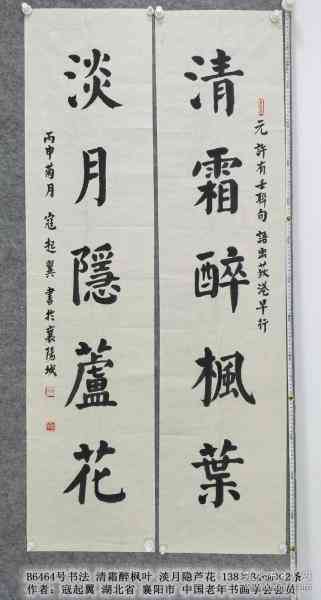 元 許有壬聯句 語出荻港早行
清霜醉楓葉
淡月隱蘆花
丙申菊月 寇起翼 書於襄陽城
B6464号书法 清霜醉枫叶 淡月隐芦花 138
作者：寇起翼 湖北省 襄阳市 中国老年书画学会会员